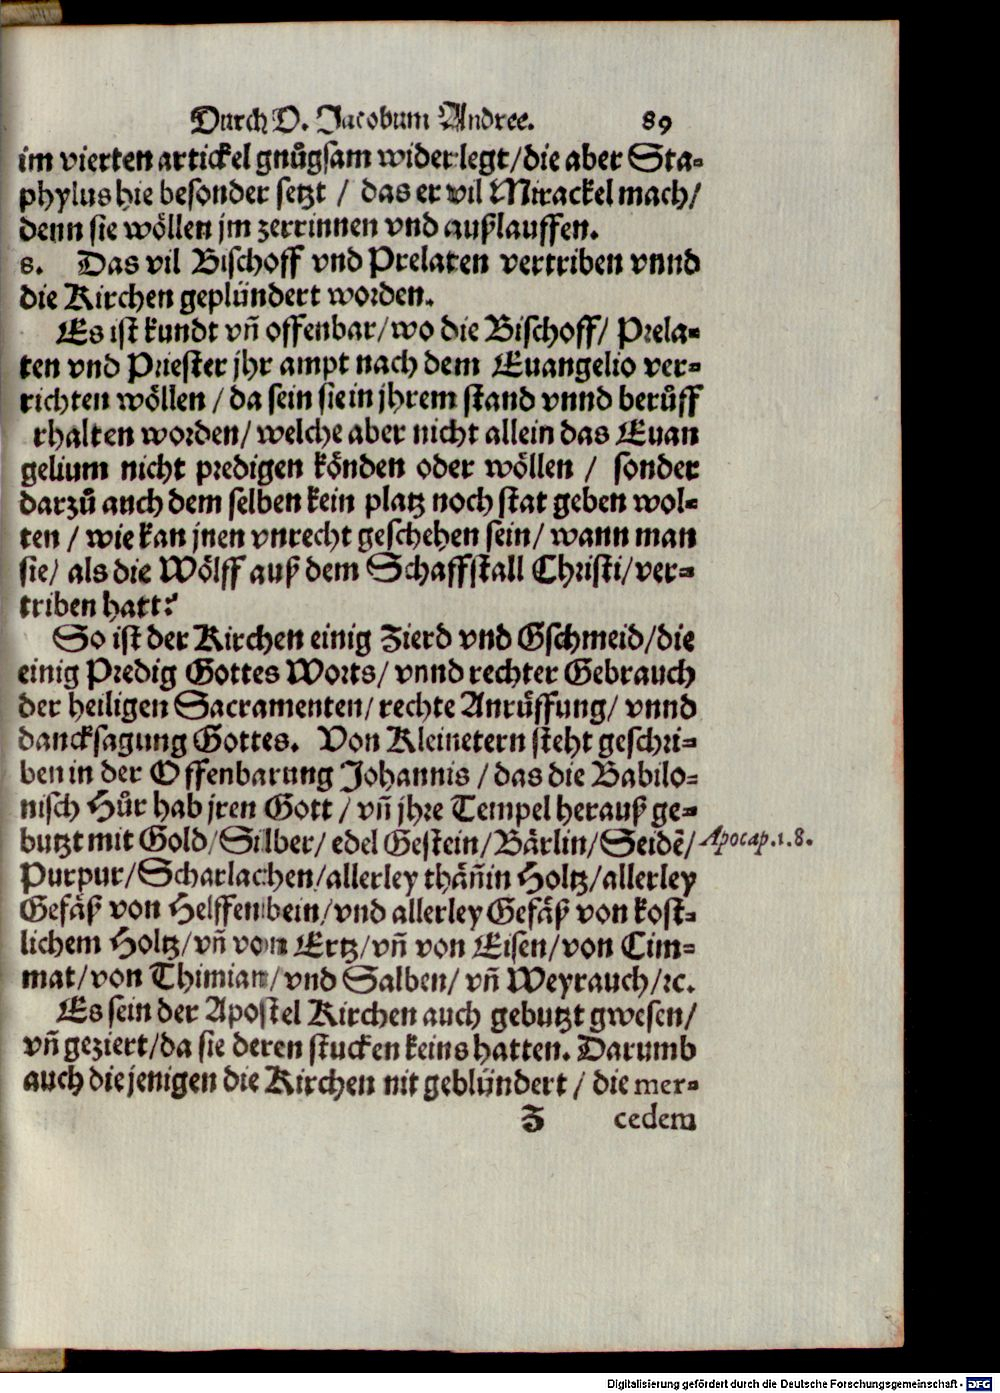 Durch D. Jacobum Andree. 89
im vierten artickel gnůgsam widerlegt/die aber Sta-
phylus hie besonder setzt / das er vil Mirackel mach/
denn sie wöllen jm zerrinnen vnd außlauffen.
8. Das vil Bischoff vnd Prelaten vertriben vnnd
die Kirchen geplündert worden.
Es ist kundt vñ offenbar/wo die Bischoff/ Prela-
ten vnd Priester jhr ampt nach dem Euangelio ver-
richten wöllen / da sein sie in jhrem stand vnnd berůff
rhalten worden/ welche aber nicht allein das Euan
gelium nicht predigen könden oder wöllen / sonder
darzů auch dem selben kein platz noch stat geben wol-
ten / wie kan jnen vnrecht geschehen sein/ wann man
sie/ als die Wölff auß dem Schaffstall Christi/ver-
triben hatt?
So ist der Kirchen einig Zierd vnd Gschmeid/die
einig Predig Gottes Worts/ vnnd rechter Gebrauch
der heiligen Sacramenten/ rechte Anrůffung/ vnnd
dancksagung Gottes. Von Kleinetern steht geschri-
ben in der Offenbarung Johannis / das die Babilo-
nisch Hůr hab jren Gott / vñ jhre Tempel herauß ge-
butzt mit Gold/Silber/ edel Gestein/Bärlin/Seidẽ/ Apocap.1.8.
Purpur/Scharlachen/allerley thäñin Holtz/allerley
Gefäß von Helffenbein/vnd allerley Gefäß von kost-
lichem Holtz/vñ von Ertz/vñ von Eisen/von Cim-
mat/von Thimian/vnd Salben/ vñ Weyrauch/ꝛc.
Es sein der Apostel Kirchen auch gebutzt gwesen/
vñ geziert/da sie deren stucken keins hatten. Darumb
auch die jenigen die Kirchen nit geblündert / die mer-
Z cedem
Digitalisierung gefördert durch die Deutsche Forschungsgemeinschaft - DFG